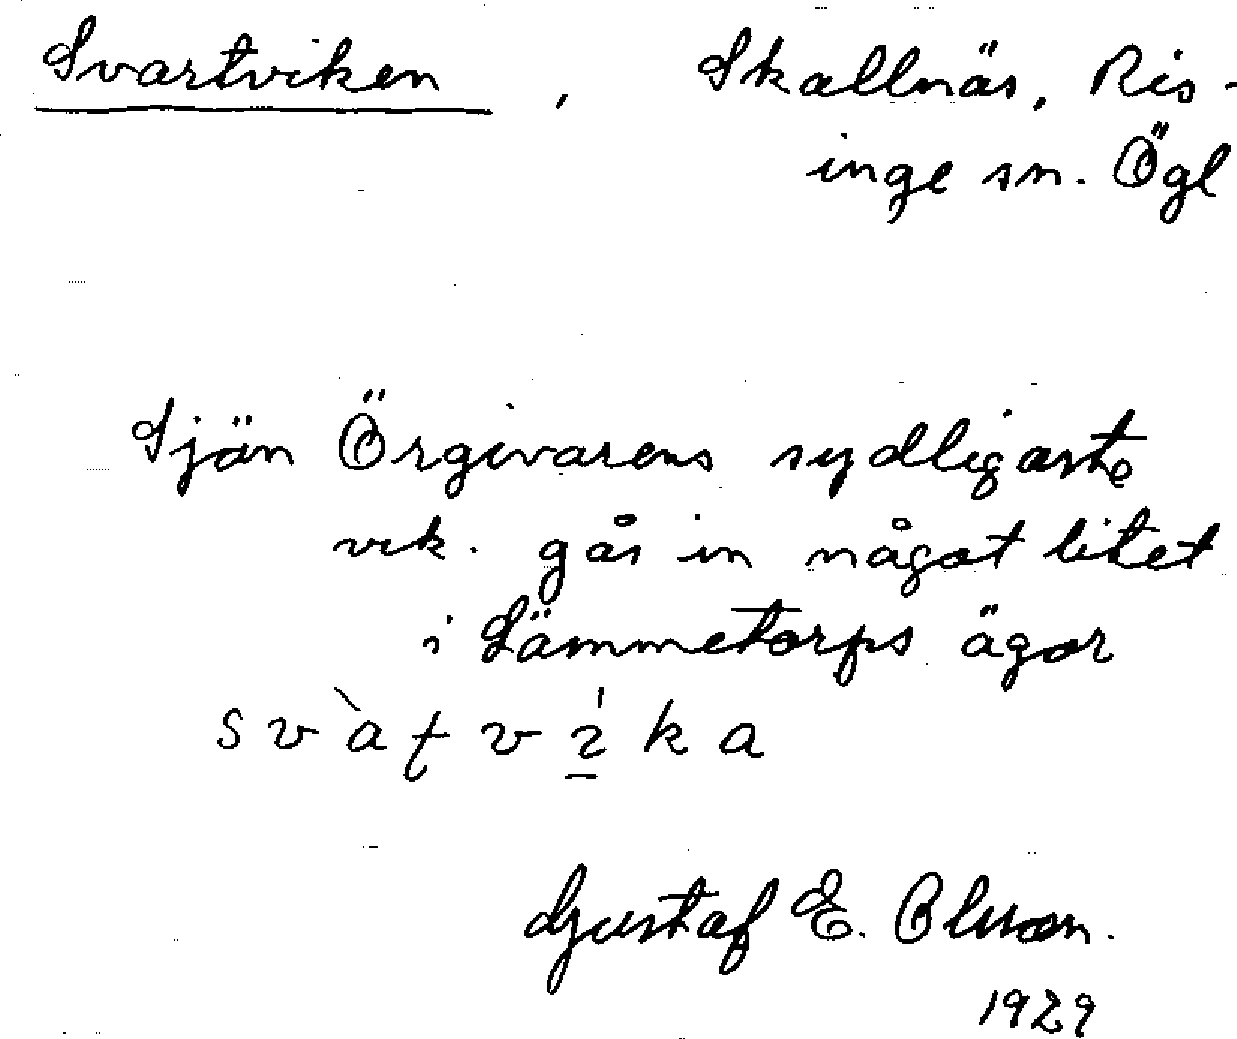 Svartviken, Skallnäs, Ris-
inge sn. Ögl
Sjön Örgivarens sydligaste
vik. går in något litet
i Lämmetorps ägor
svàƭvíka
Gustaf E. Olsson.
1929